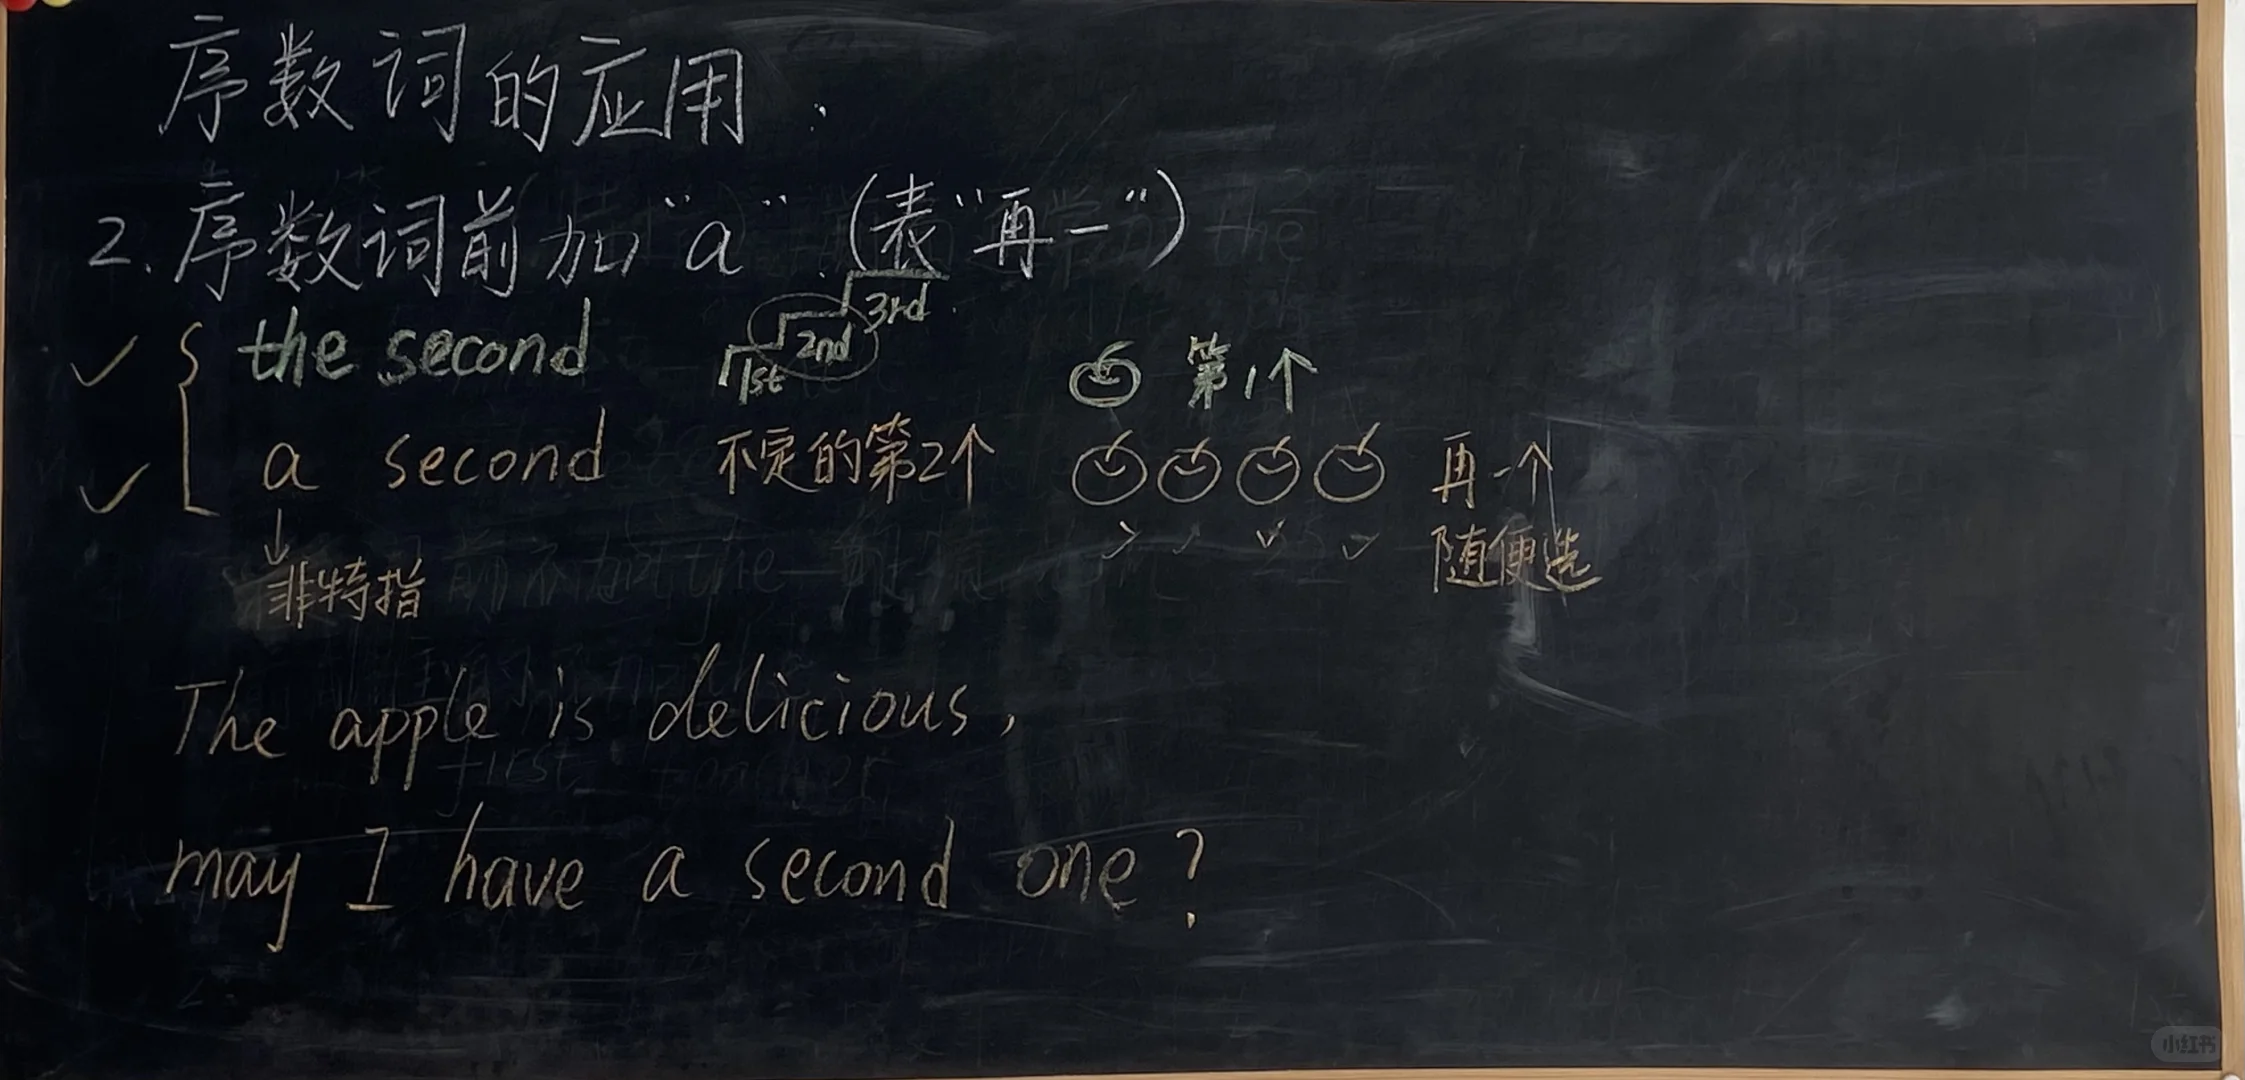 序数词的应用：
2. 序数词前加"a".（表"再一"）
the second 1st 2nd 3rd 第1个
a second 不定的第2个 再一个
非特指 随便选
The apple is delicious,
may I have a second one?
小红书